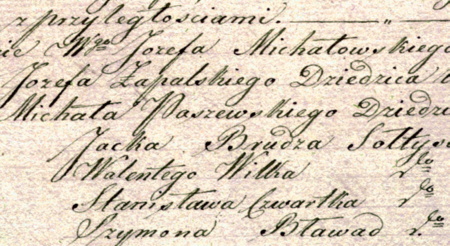 z przyległościami. — „ —
Wgo Jozefa Michałowskiego
Jozefa Zapalskiego Dziedzica
Michała Paszewskiego Dziedzi
Jacka Brudza Sołtys
Walentego Wilka
Stanisława Czwartka
Szymona Bławad